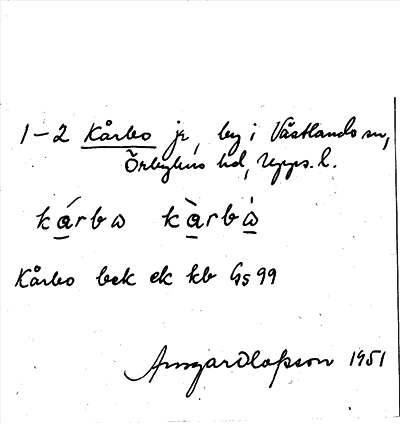 1-2 Kårbo jr, by i Västlands sn,
Örbyhus hd, Upps. l.
kárbω kàrbω̇
Kårbo bek ek kb Gs 99
Ansgar Olofsson 1951